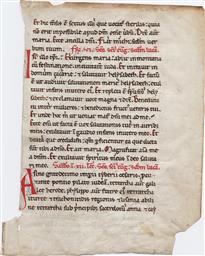 Et hic mensis e sextus illi que vocat sterilis: quia
non erit impossibile apud dm omne verbum. Dix aut
maria. Ecce ancilla dni. Fiat michi scdm ver
bum tuum.
Exurgens maria abiit in montana
cum festinatione in civitate iuda. Et intravit in
domum zacharie & salutavit helysabeth. Et
est ut audivit salutatione marie helysabeth: ex
ultavit infans in utero ei. Et repleta e spu sco
helysabeth & exclamavit voce magna & dix. Benedicta
tu inter mulieres & benedictus fruct ventris tui.
Et unde hoc m ut veniat mat dni mei ad me.
Ecce eni ut facta e vox salutationis tue in aurib;
meis: exultavit i gaudio infans in utero meo. Et
beata que credidisti: qm pficient ea que dicta
sunt tibi a dno. Et ait maria. Magnificat aia me
a dnm. Et exultavit spiritus meus i deo salutari
meo.
Anno quintodecimo imperii tyberii cesaris: pcu
rante pontio pilato iudea. tetrarcha aut gali
lee herode. philippo aut fratre ei tetrarcha
ituree & trachonitidis regionis. & lisania abi
line tetrarcha. sub principib; sacerdotu anna & cay